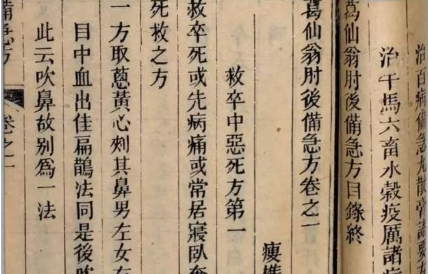 治百病備急丸散常諸要方
治牛馬六畜水穀疫厲諸病
葛仙翁肘後備急方目錄終
葛仙翁肘後備急方卷之一
救卒中惡死方第一
救卒死或先病痛或常居寢臥奄
死救之方
一方取葱黃心刺其鼻男左女右
目中血出佳扁鵲法同是後吹
此云吹鼻故别為一法
備急方
卷之一